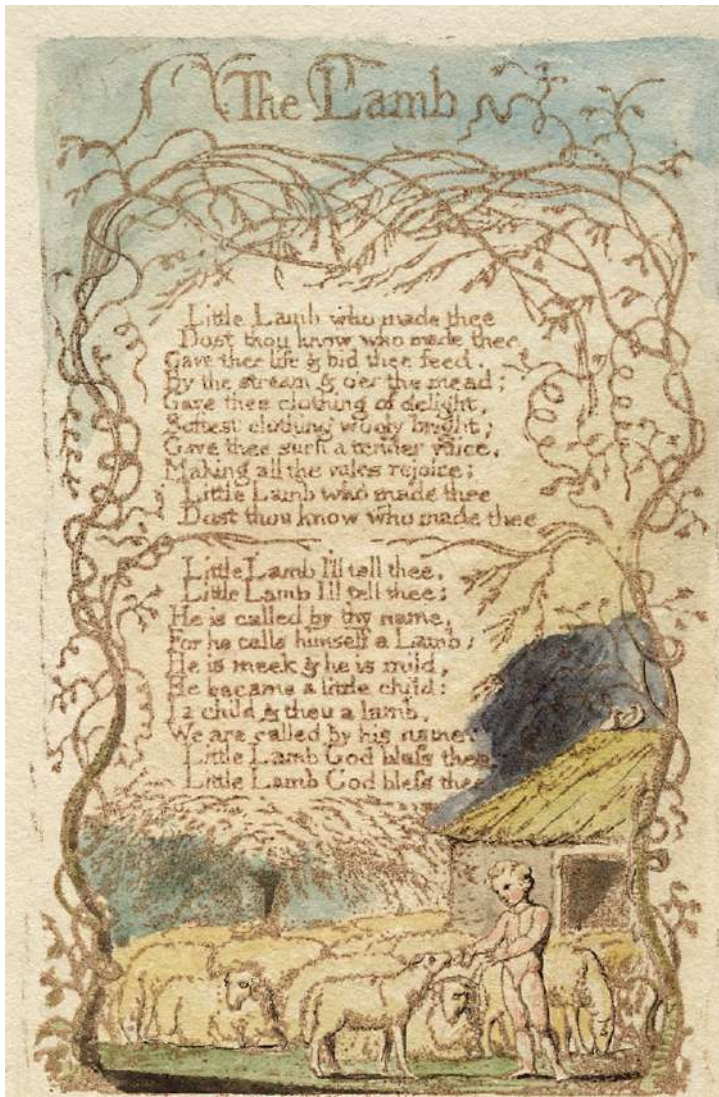 The Lamb
Little Lamb who made thee
Dost thou know who made thee
Gave thee life & bid thee feed.
By the stream & o'er the mead;
Gave thee clothing of delight,
Softest clothing wooly bright;
Gave thee such a tender voice,
Making all the vales rejoice;
Little Lamb who made thee
Dost thou know who made thee
Little Lamb I'll tell thee,
Little Lamb I'll tell thee;
He is called by thy name,
For he calls himself a Lamb;
He is meek & he is mild,
He became a little child:
I a child & thou a lamb,
We are called by his name.
Little Lamb God bleſs thee.
Little Lamb God bleſs thee